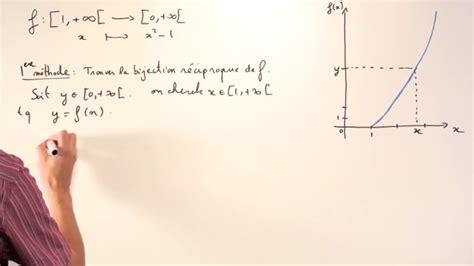 f : [1, +∞[ ⟶ [0, +∞[
x ⟼ x² - 1
1ère méthode : Trouver la bijection réciproque de f.
Soit y ∈ [0, +∞[. on cherche x ∈ [1, +∞[
tq y = f(x).
f(x)
y
1
0
1
x
x